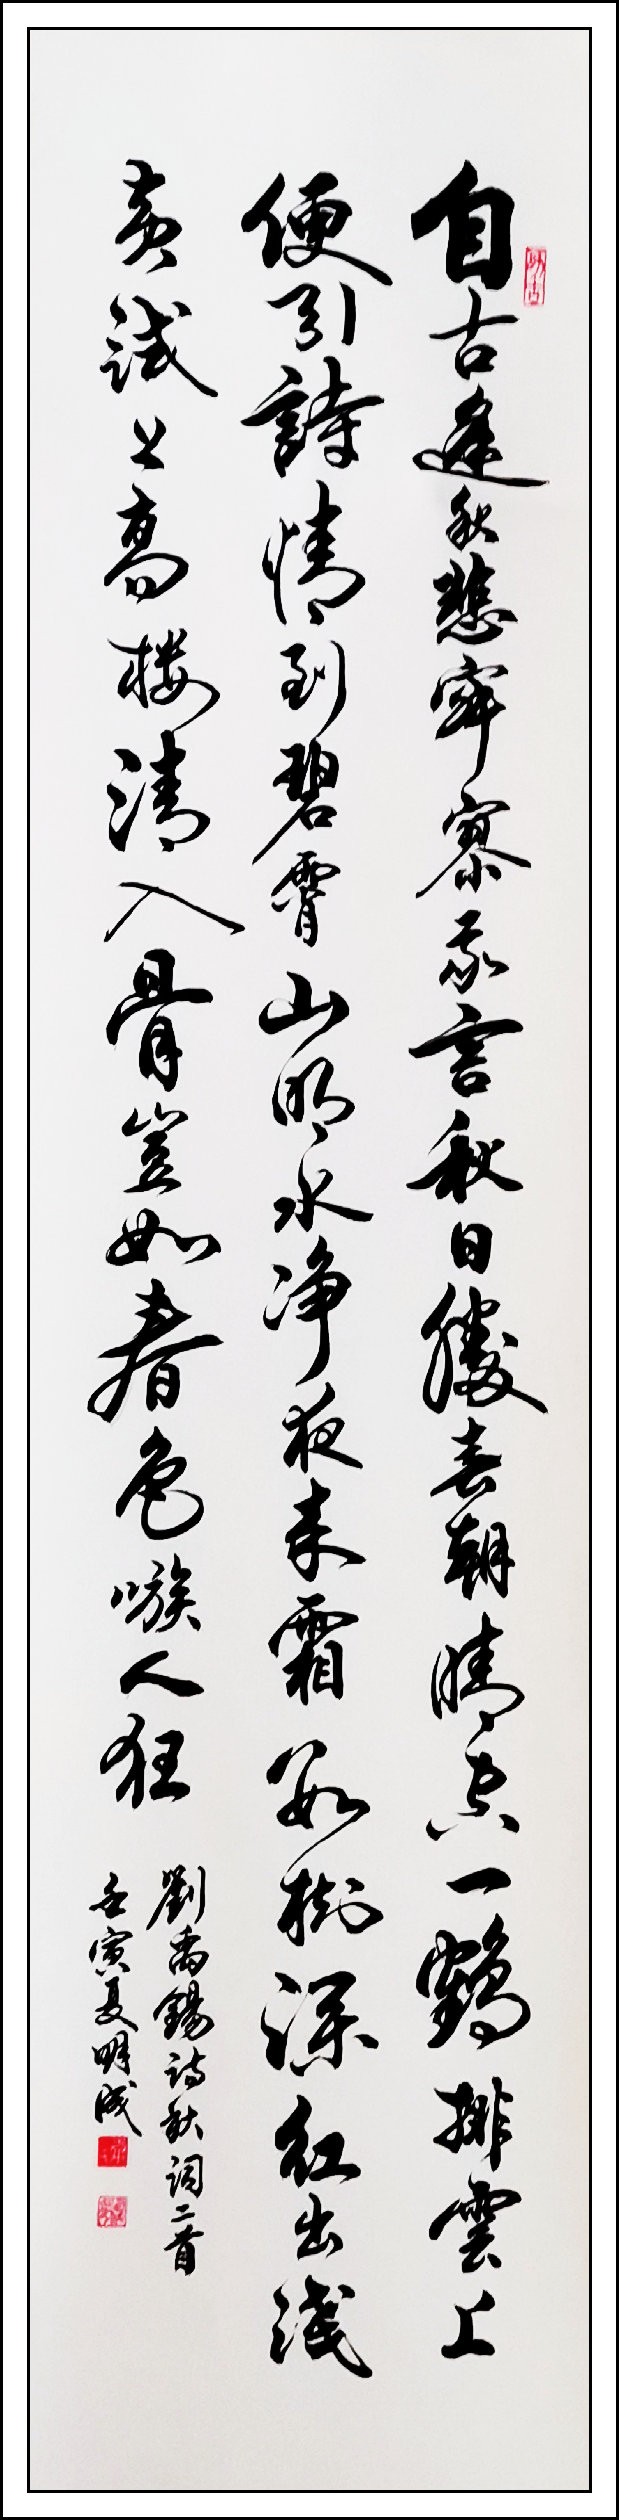 自古逢秋悲寂寥我言秋日勝春朝晴空一鶴排雲上
便引詩情到碧霄山明水净夜来霜數樹深红出浅
黄試上高楼清入骨豈如春色嗾人狂
劉禹錫詩秋詞二首
壬寅夏明成